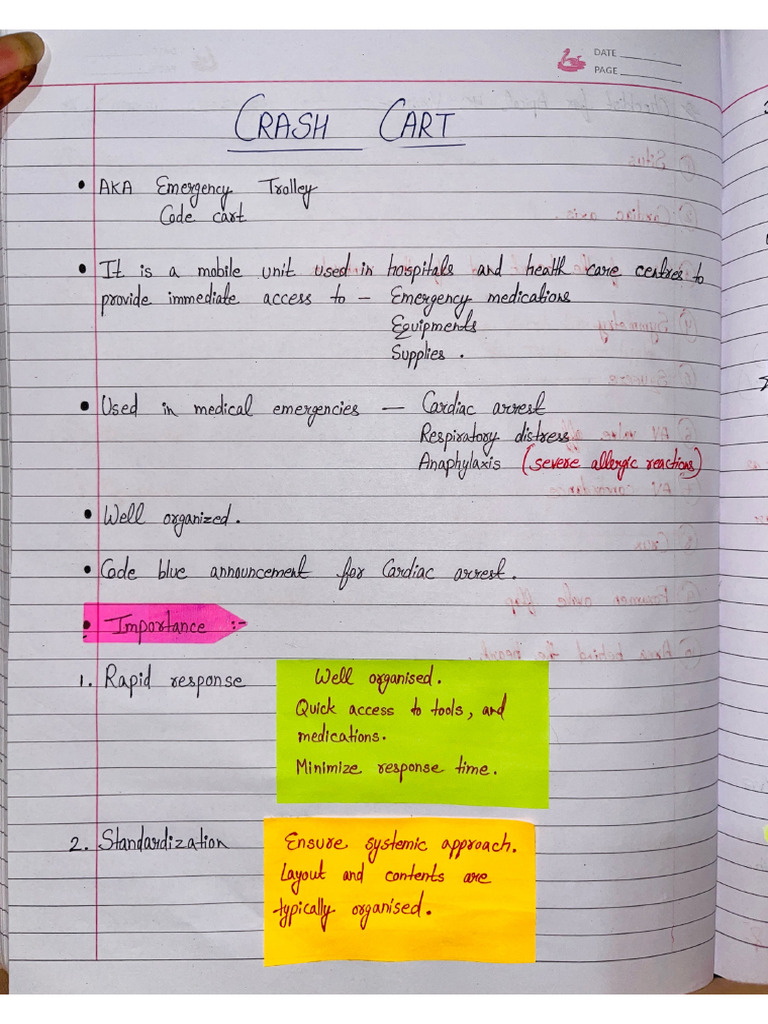 DATE
PAGE
CRASH CART
• AKA Emergency Trolley
Code cart
• It is a mobile unit used in hospitals and health care centres to
provide immediate access to – Emergency medications
Equipments
Supplies .
• Used in medical emergencies — Cardiac arrest
Respiratory distress
Anaphylaxis (severe allergic reactions)
• Well organized.
• Code blue announcement for Cardiac arrest.
• Importance :-
1. Rapid response
Well organised.
Quick access to tools, and
medications.
Minimize response time.
2. Standardization
Ensure systemic approach.
Layout and contents are
typically organised.